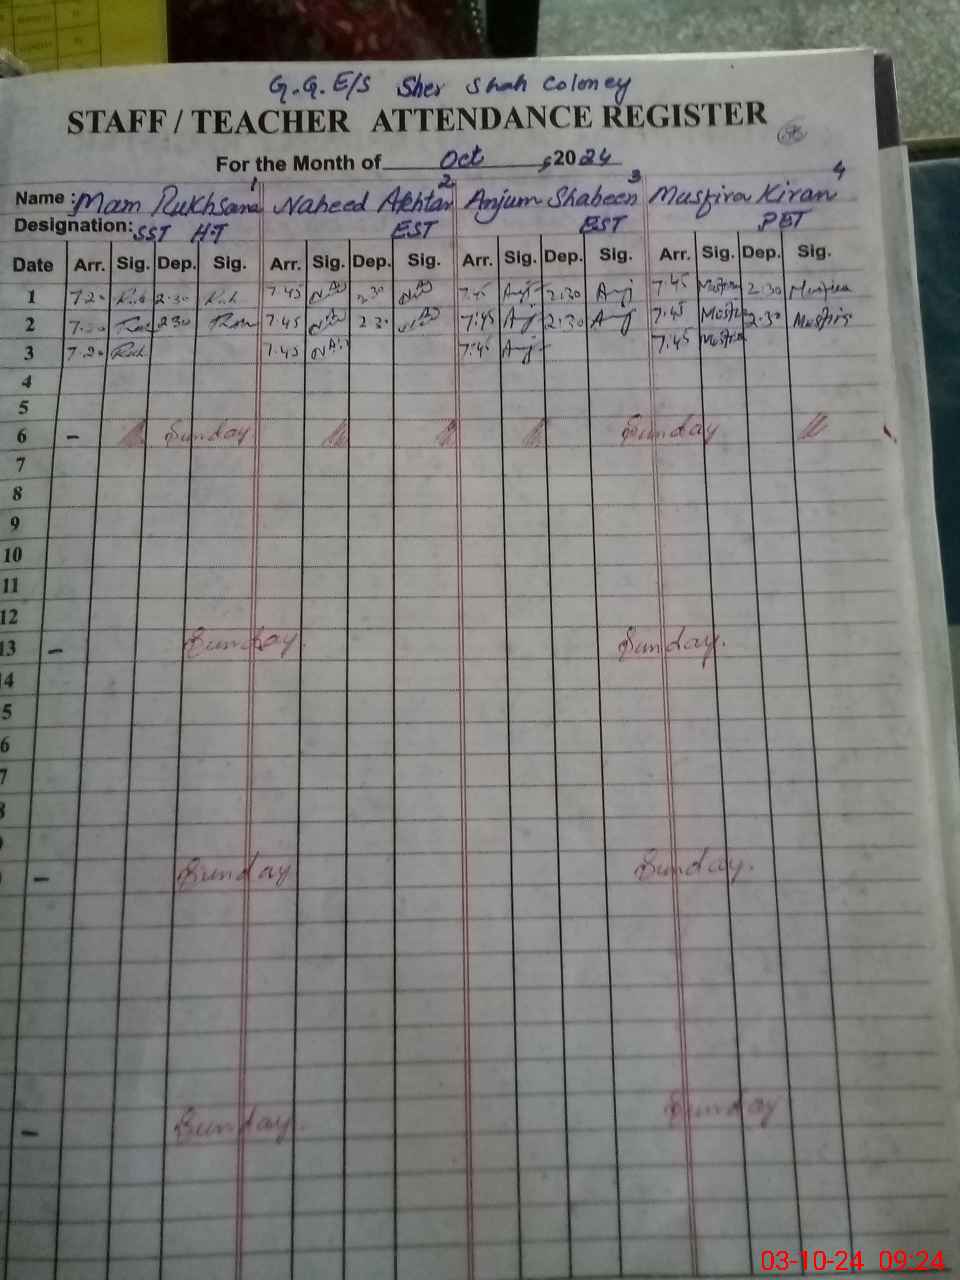 G.G.E/S Sher Shah Coloney
STAFF / TEACHER ATTENDANCE REGISTER
For the Month of Oct ,2024
1 2 3 4
Name : Mam Rukhsana Naheed Akhtar Anjum Shaheen Musfira Kiran
Designation: SST HT EST EST PET
Date Arr. Sig. Dep. Sig. Arr. Sig. Dep. Sig. Arr. Sig. Dep. Sig. Arr. Sig. Dep. Sig.
1 7.20 2.30 7.45 2.30 7.45 Anj 2:30 Anj 7.45 Musfira 2.30 Musfira
2 7.20 2.30 7.45 2.30 7.45 Anj 2:30 Anj 7.45 2.30
3 7.20 7.45 7.45 Anj 7.45
4
5
6 – Sunday Sunday
7
8
9
10
11
12
13 – Sunday. Sunday.
14
5
6
7
8
– Sunday Sunday.
– Sunday. Sunday
03-10-24 09:24